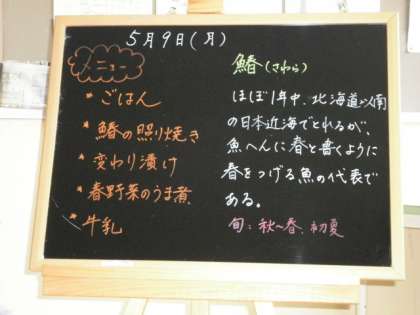 5月9日(月)
メニュー
* ごはん
* 鰆の照り焼き
* 変わり漬け
* 春野菜のうま煮
* 牛乳
鰆(さわら)
ほぼ1年中、北海道以南
の日本近海でとれるが、
魚へんに春と書くように
春をつげる魚の代表で
ある。
旬:秋~春、初夏